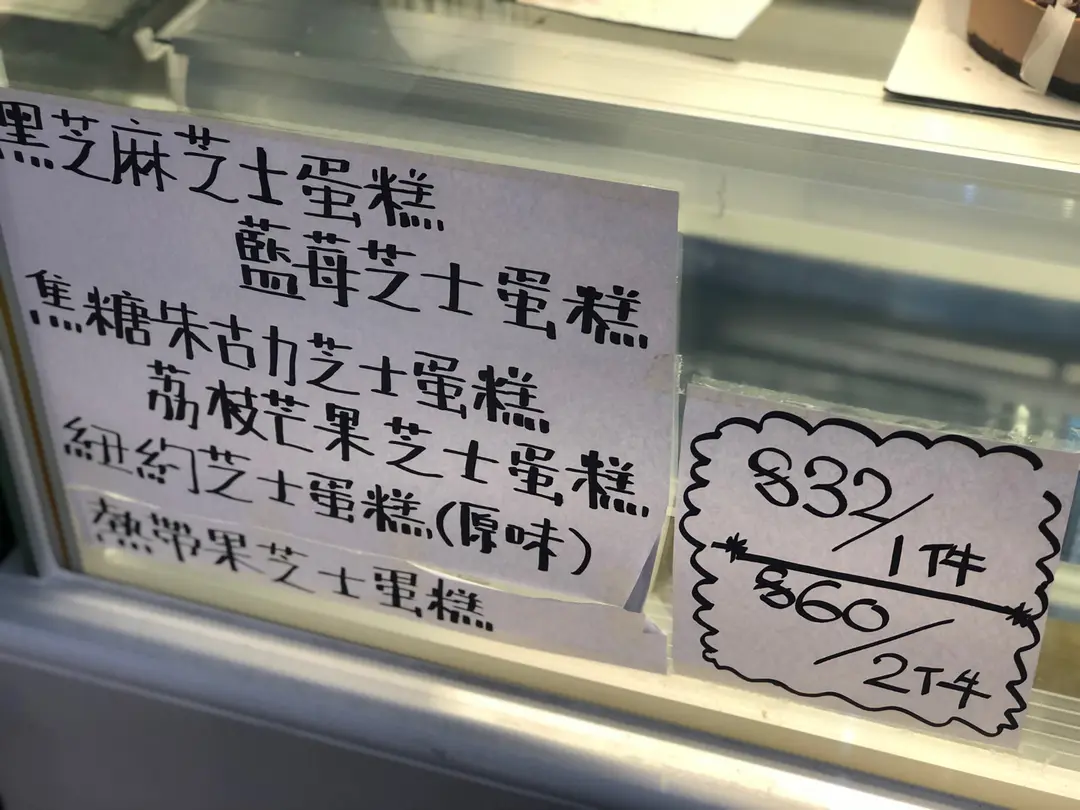 黑芝麻芝士蛋糕
藍莓芝士蛋糕
焦糖朱古力芝士蛋糕
荔枝芒果芝士蛋糕
紐約芝士蛋糕(原味)
熱帶果芝士蛋糕
$32/1件
$60/2件